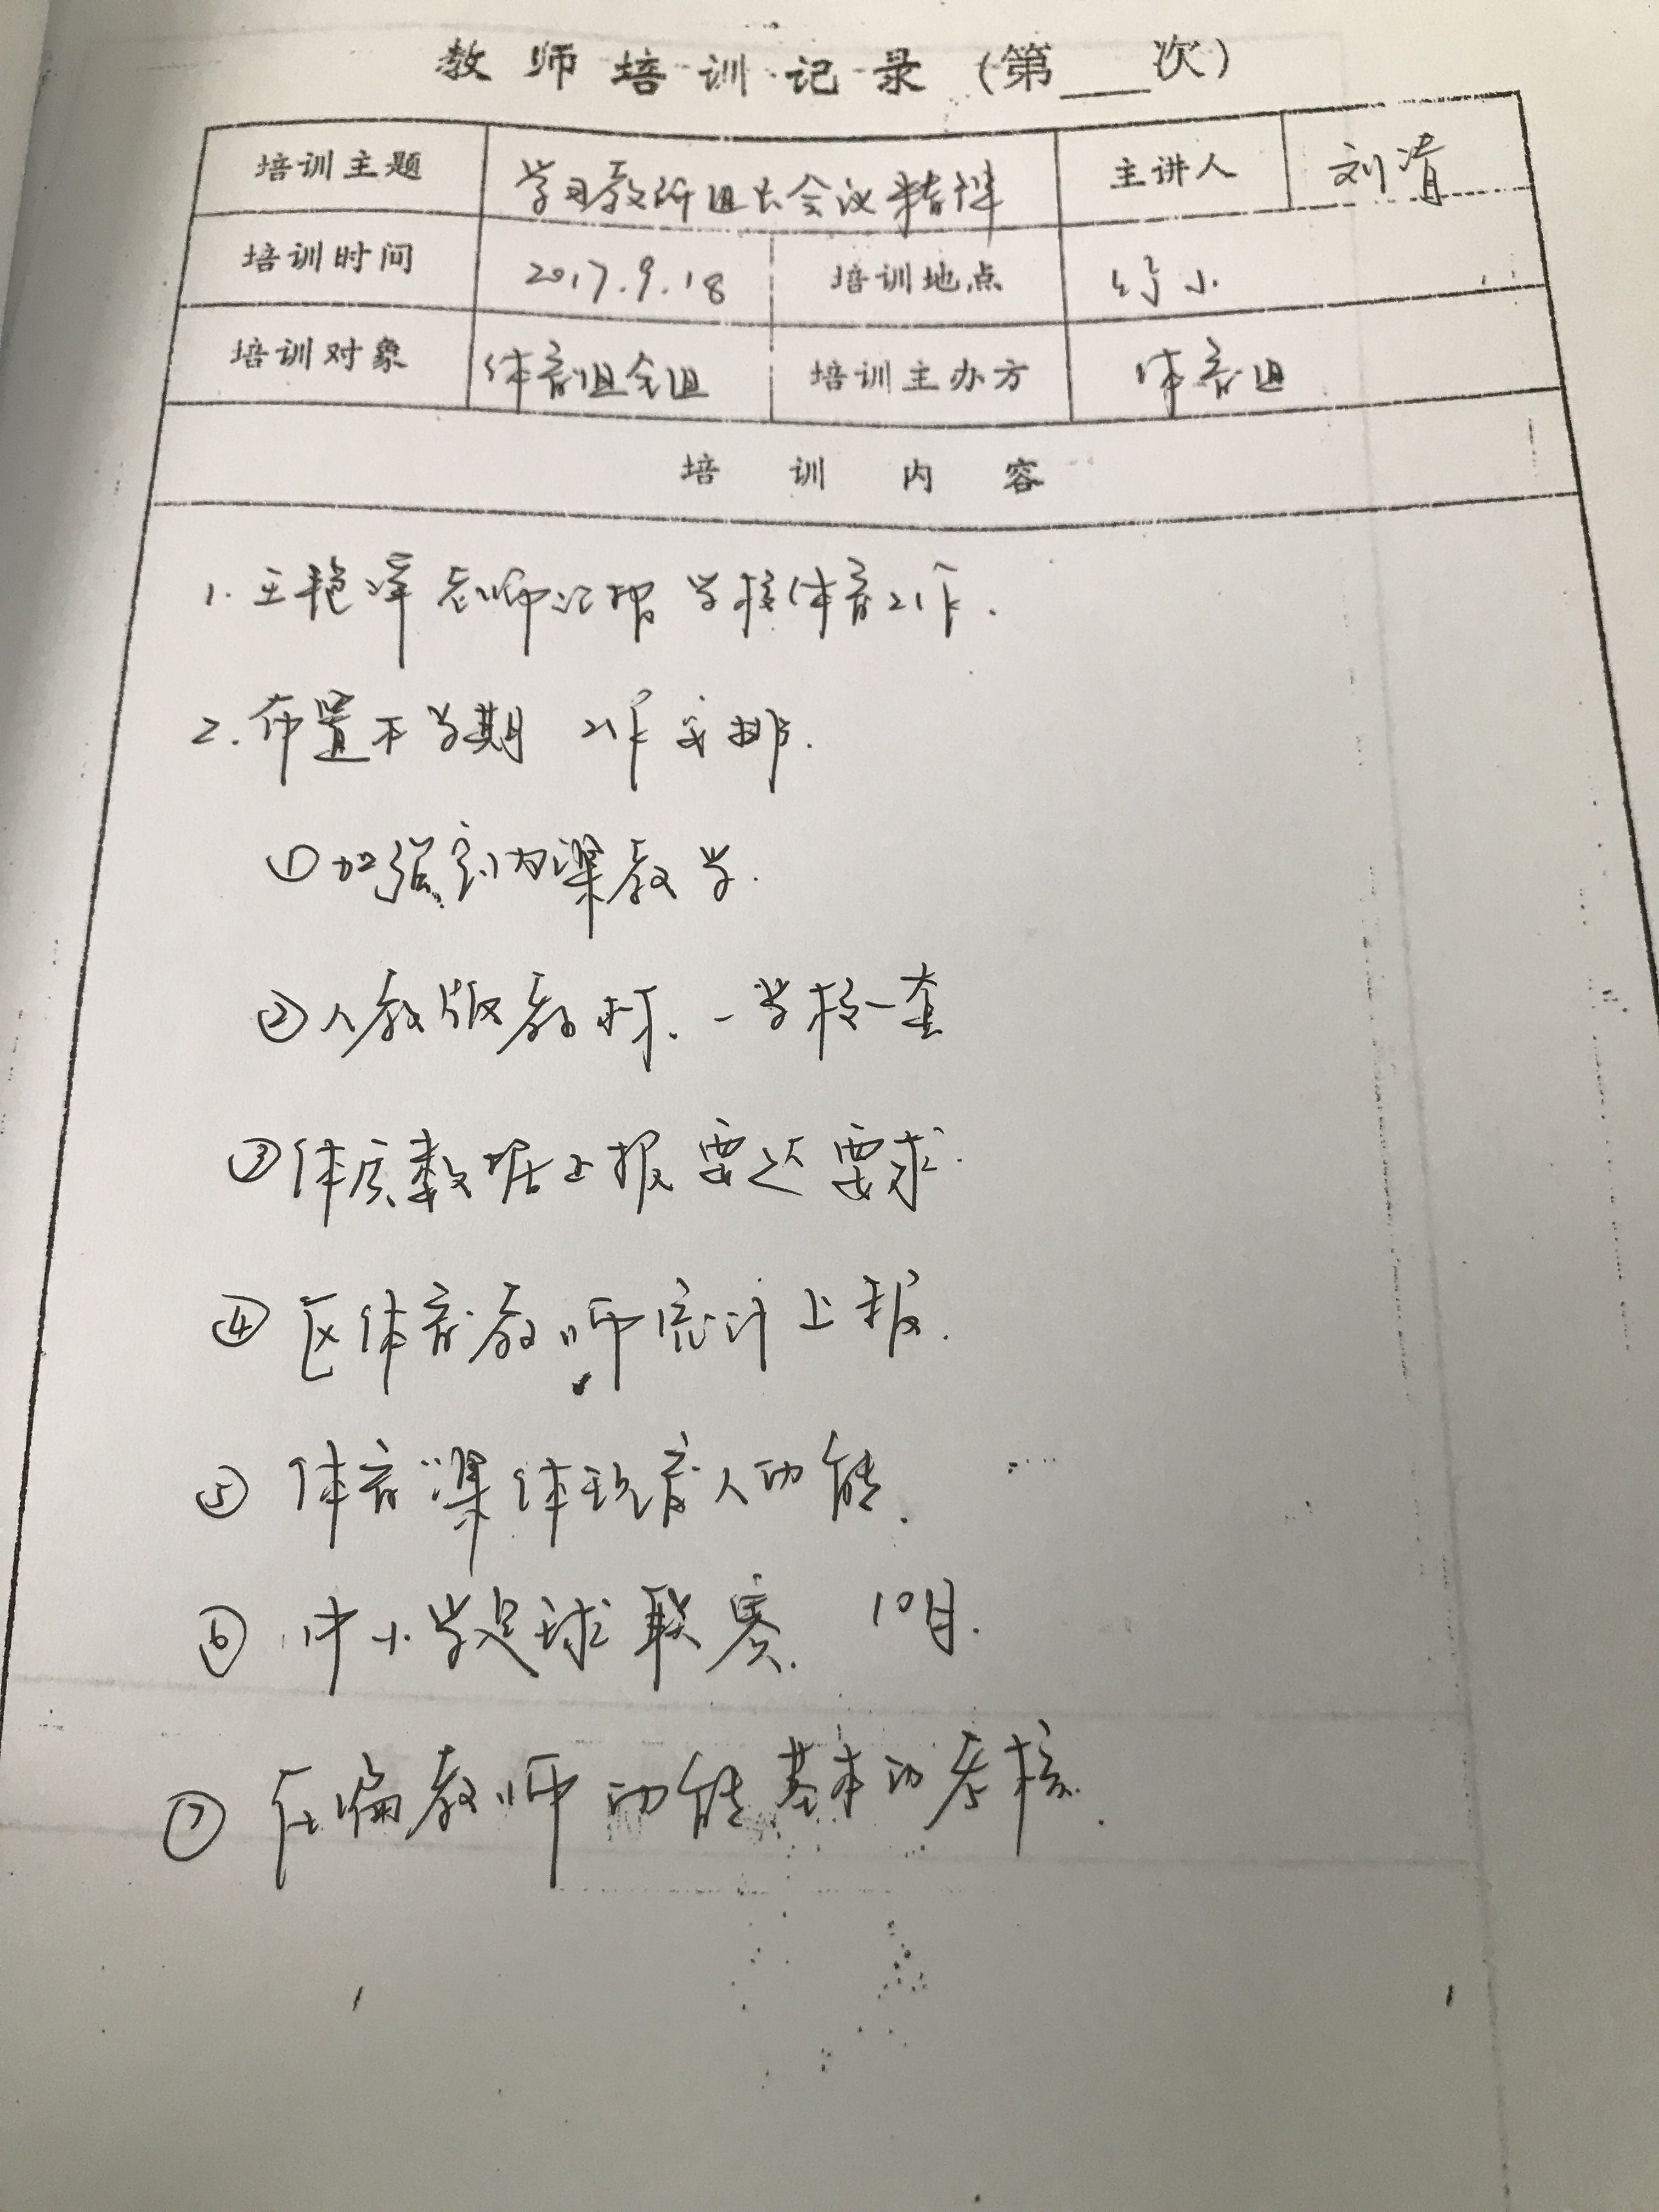 教师培训记录（第___次）
培训主题 学习教研组长会议精神 主讲人 刘清
培训时间 2017.9.18 培训地点 小
培训对象 体育组全组 培训主办方 体育组
培训内容
1. 王艳 老师汇报 学校体育工作.
2. 布置本学期 工作安排.
① 加强室内课教学.
② 人教版教材. 一学校一套
③ 体质数据上报要达要求.
④ 区体育教师统计上报.
⑤ 体育课体现育人功能.
⑥ 中小学足球联赛. 10月.
⑦ 在编教师功能基本功考核.